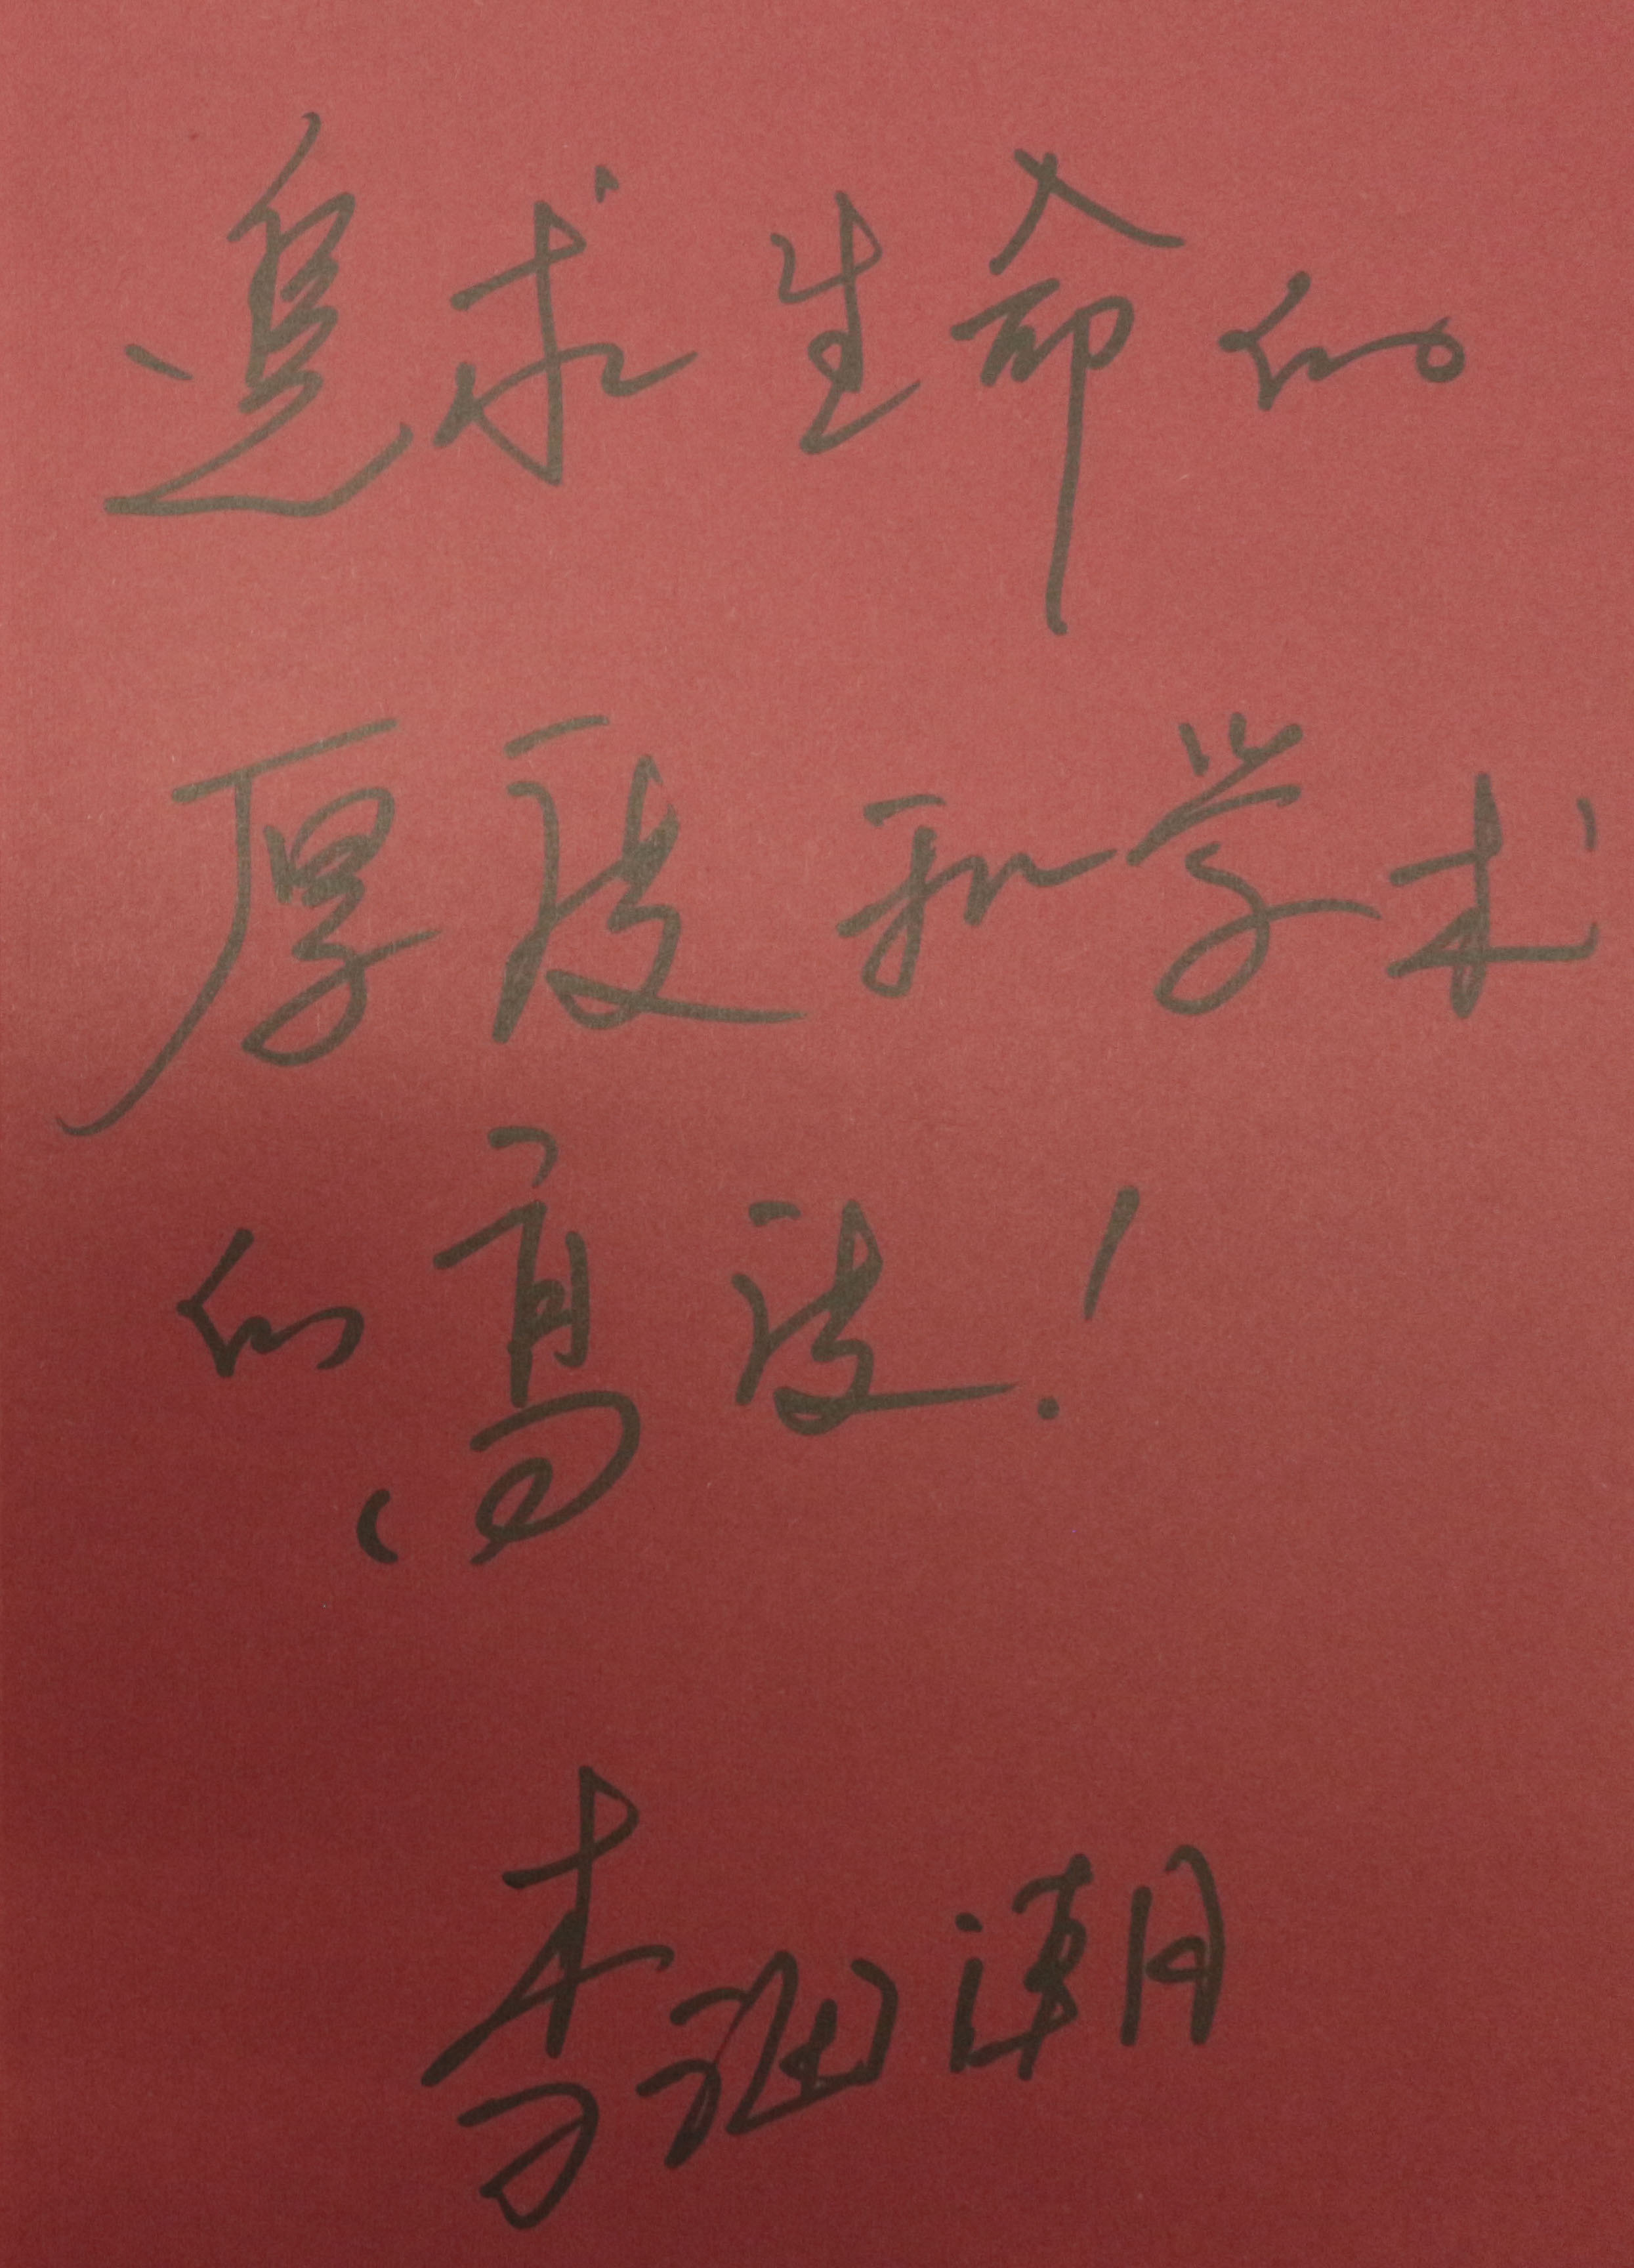 追求生命的
厚度和学术
的高度！
李 潮